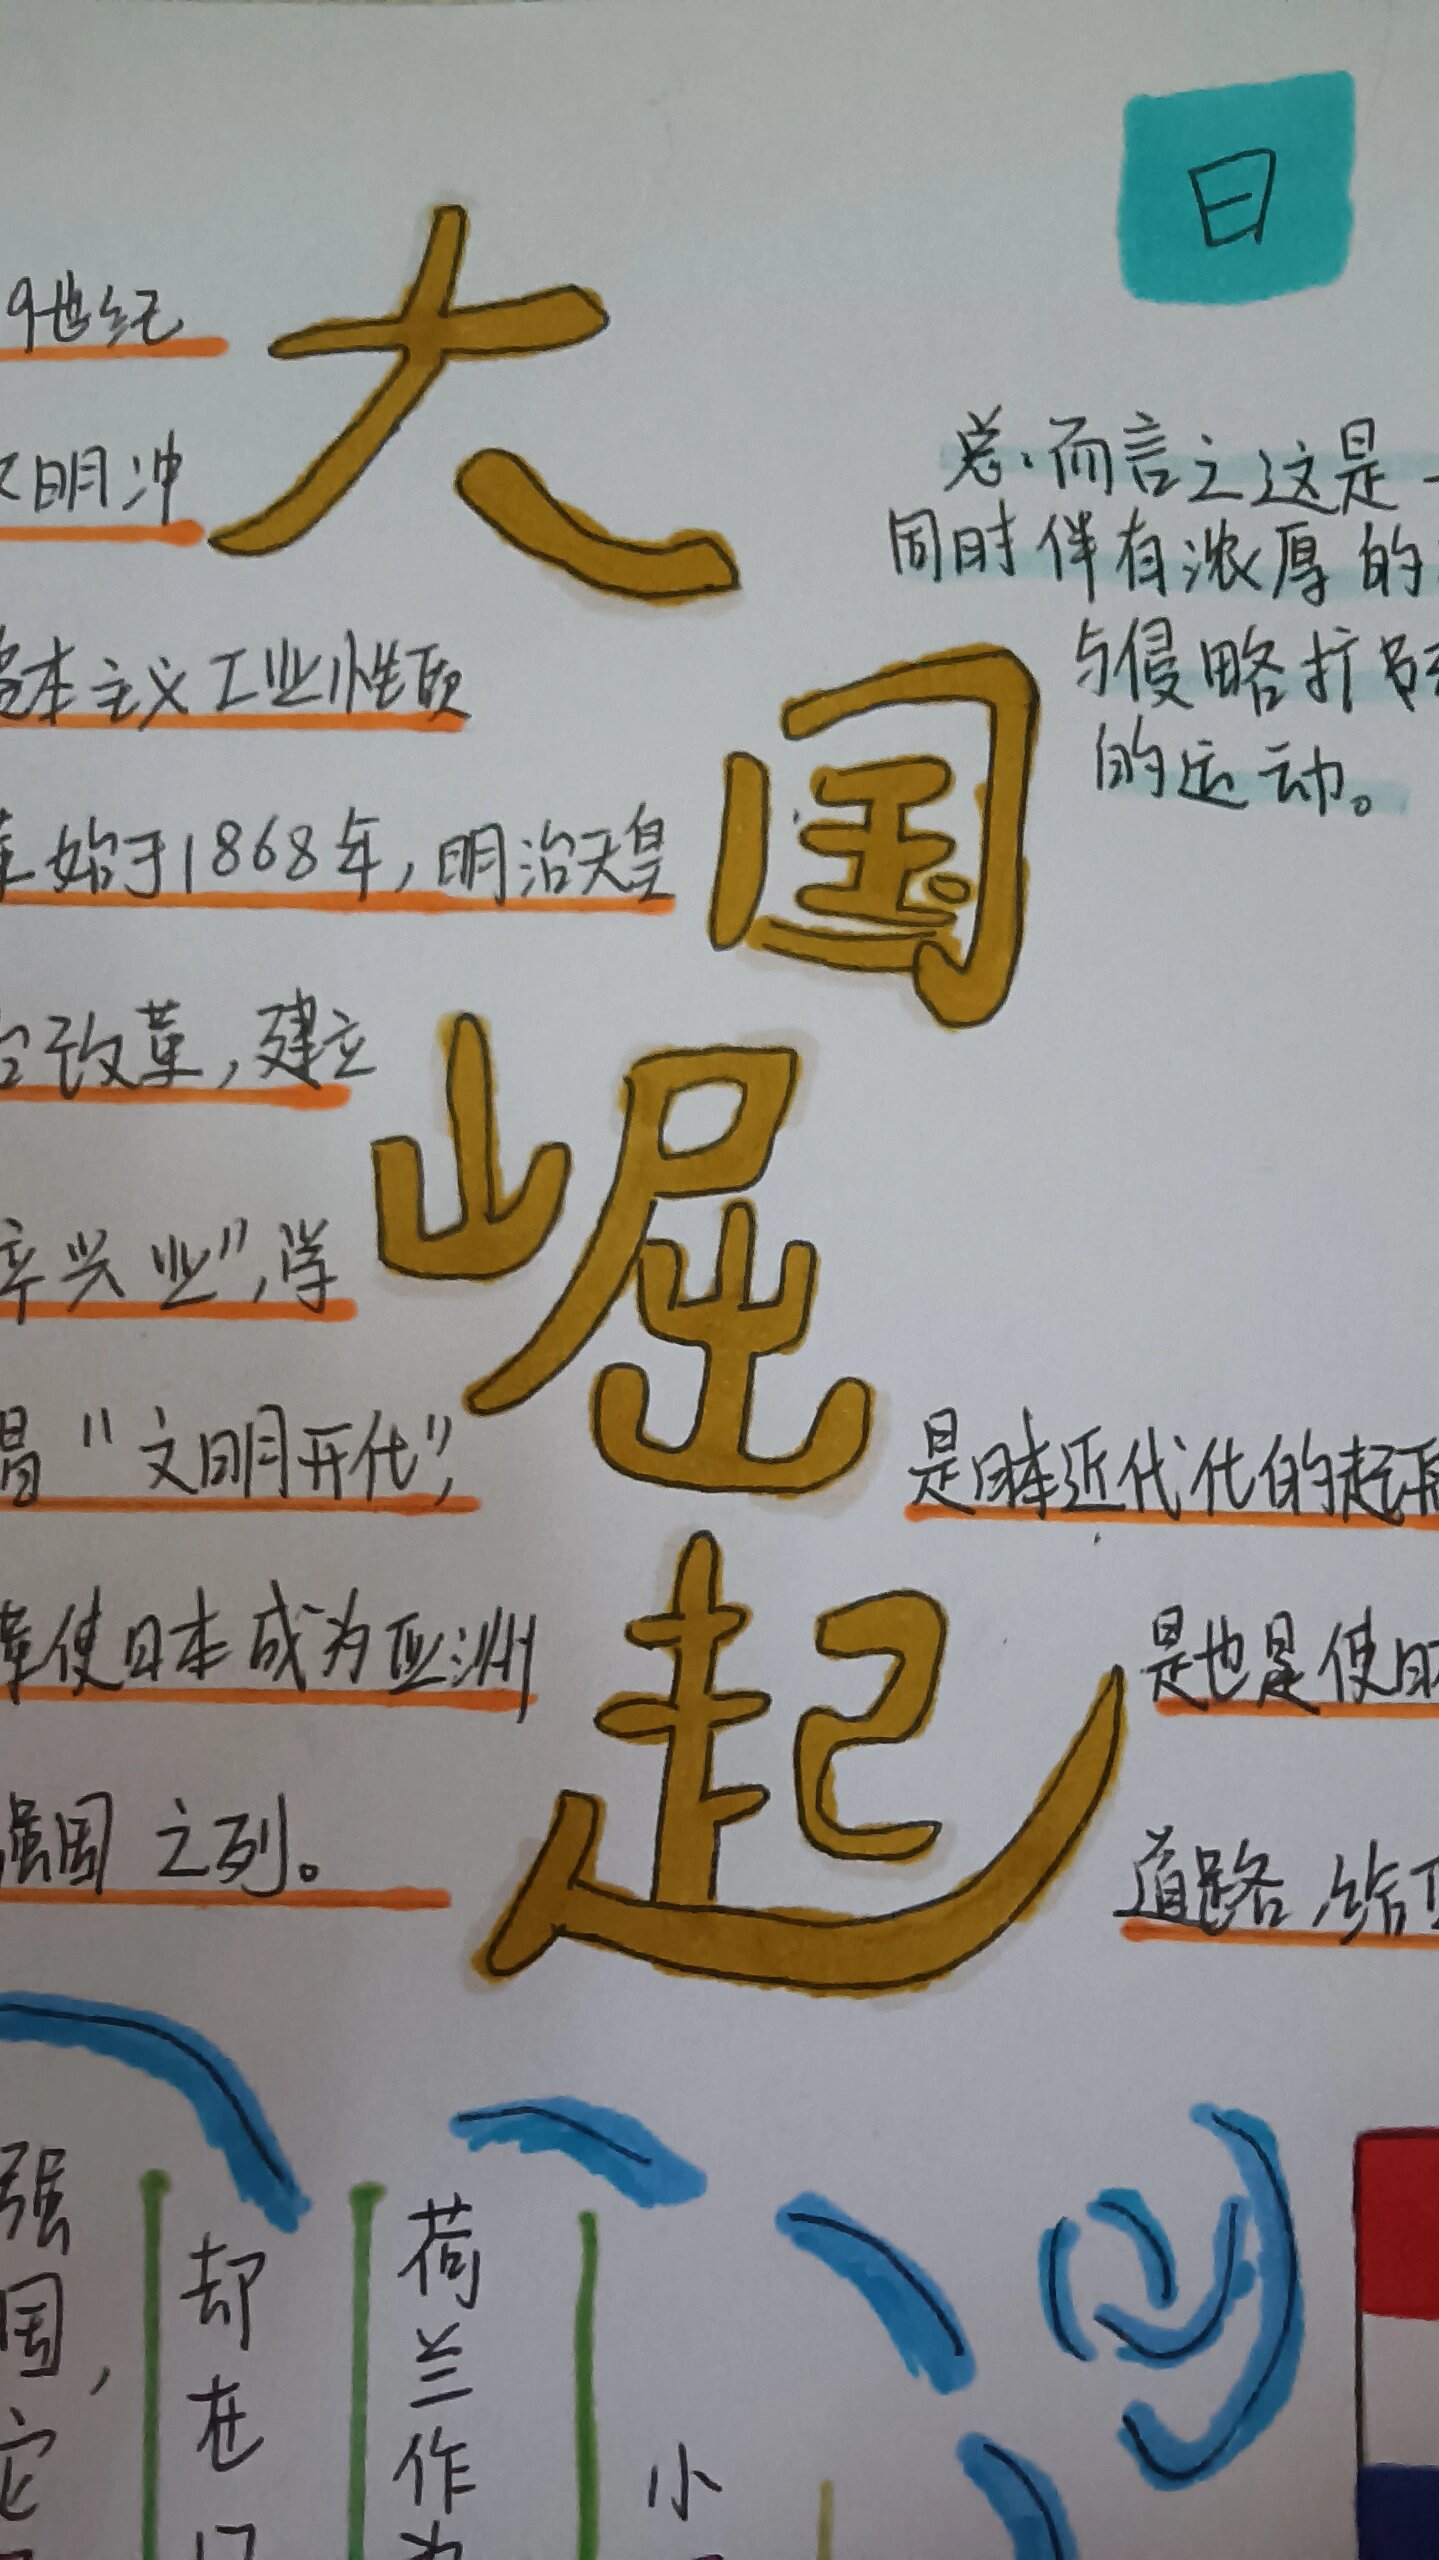 大国崛起
日
9世纪
明冲
本主义工业性质
始于1868年，明治天皇
改革，建立
兴业”，学
“文明开代”，
使日本成为亚洲
强国之列。
总而言之这是
同时伴有浓厚的
与侵略扩
的运动。
是日本近代化的起
是也是使日本
道路，给
强国，它
却在
荷兰作为
小